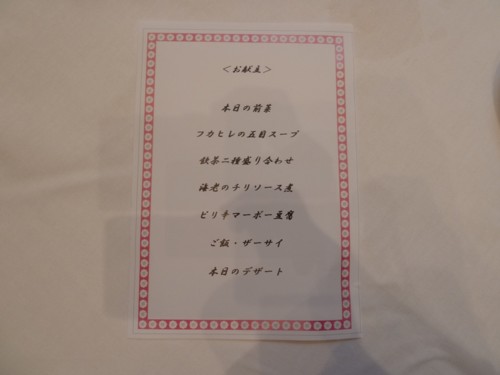 ＜お献立＞
本日の前菜
フカヒレの五目スープ
飲茶二種盛り合わせ
海老のチリソース煮
ピリ辛マーボー豆腐
ご飯・ザーサイ
本日のデザート